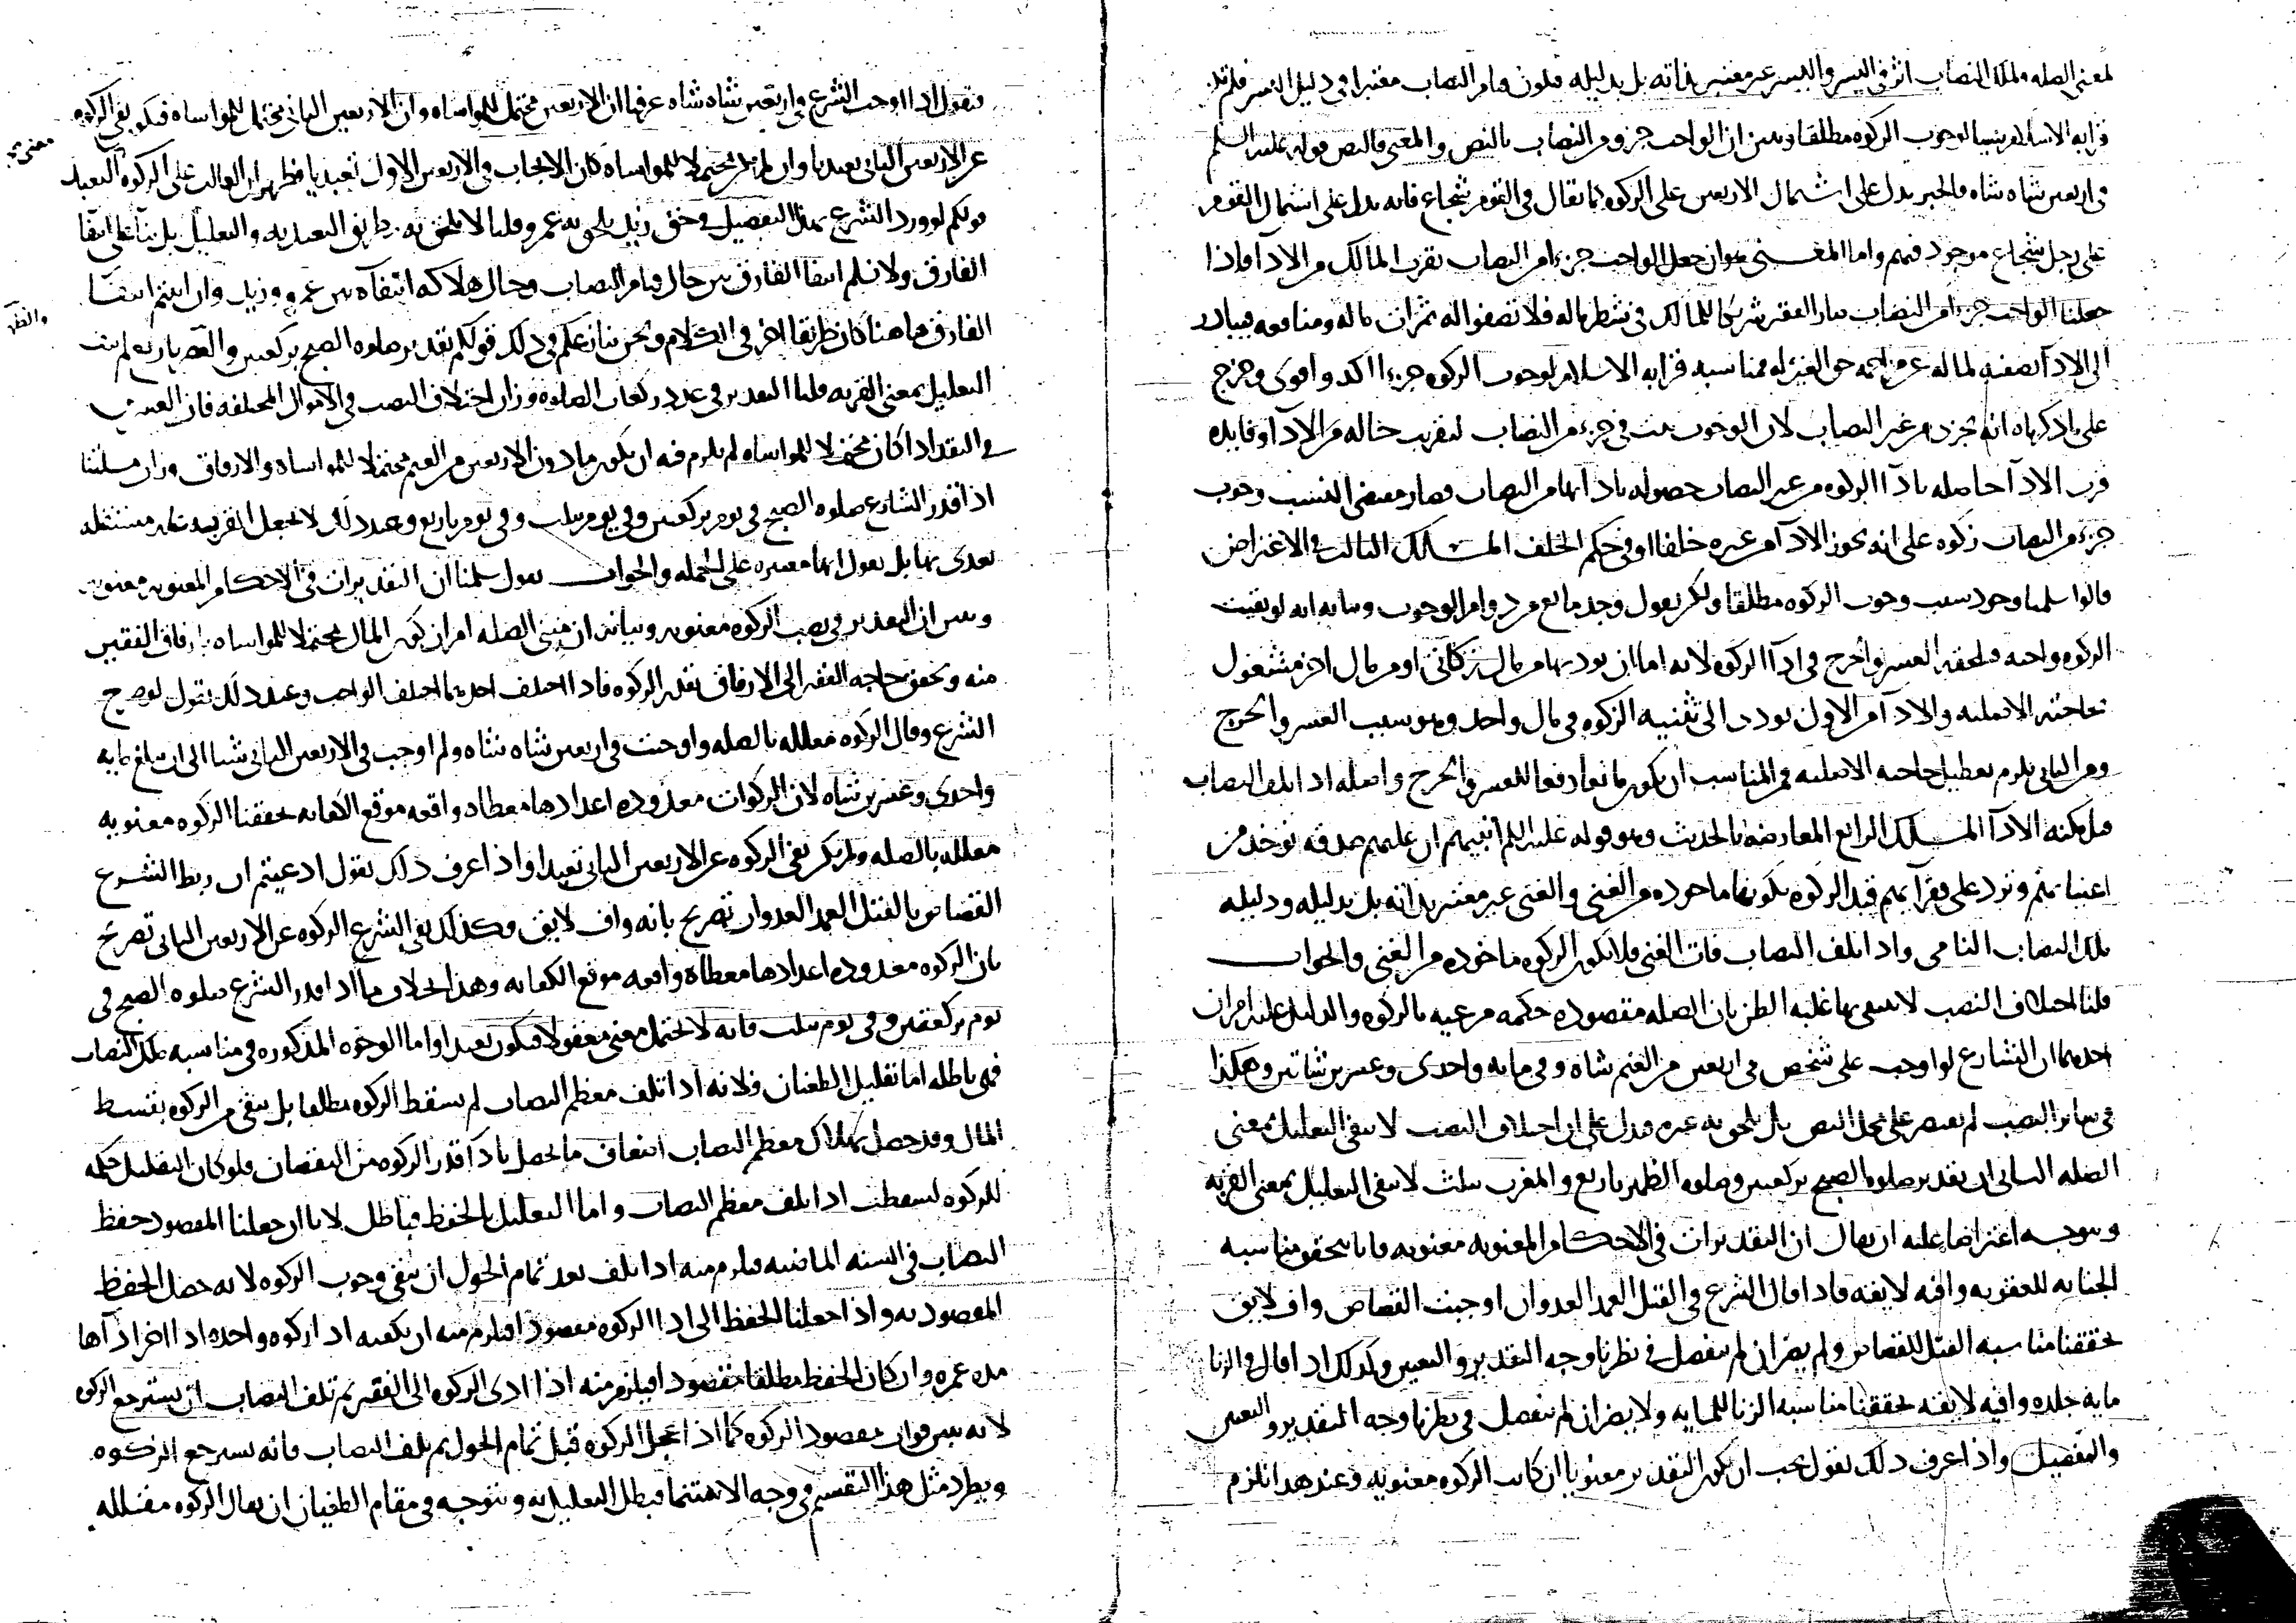 لمعنى الصله ولملك النصاب اثر في اليسر واليسر غير معتبر بذاته بل بدليله فكون قيام النصاب معتبرا في دليل اليسر
قرابه الاسلام سببا لوجوب الزكوه مطلقا وبين ان الواجب جزو من النصاب بالنص والمعنى فالنص قوله عليه السلم
في اربعين شاه شاه والخبر يدل على اشتمال الاربعين على الزكوه كما يقال في القوم شجاع فانه يدل على اشتمال القوم
على رجل شجاع موجود فيهم واما المعنى هوان جعل الواجب جزءا من النصاب يقرب المالك من الادآ فاذا
جعلنا الواجب جزءا من النصاب صار الفقير شريكا للمالك في شطر ماله فلا تصفوا له ثمرات ماله ومنافعه فيبادر
الى الادآ تصفيه لماله عن مزاحمه حق الغير له فمناسبه قرابه الاسلام لوجوب الزكوه جزءا اكد واقوى وخرج
على ما ذكرناه انه يجزي من غير النصاب لان الوجوب يثبت في جزء من النصاب لتقريب حاله من الادآ وفايده
قرب الادآ حاصله بادآ الزكوه من غير النصاب حصوله بادآيها من النصاب فصار مقتضى السبب وجوب
جزء من النصاب زكوه على انه يجوز الادآ من غيره خلفا او في حكم الخلف المسلك الثالث في الاعتراض
قالوا سلمنا وجود سبب وجوب الزكوه مطلقا ولكن نقول وجد مانع من دوام الوجوب وبيانه انه لو بقيت
الزكوه واجبه فلحقه العسر والحرج في ادآ الزكوه لانه اما ان يوديها من مال زكاتي او من مال اخر مشغول
بحاجته الاصليه والادآ من الاول يودي الى تثنيه الزكوه في مال واحد وهو سبب العسر والحرج
ومن الثاني يلزم تعطيل حاجته الاصليه فمن المناسب ان يكون مانعا دفعا للعسر والحرج واصله اذا اتلف النصاب
قبل مكنه الادآ المسلك الرابع المعارضه بالحديث وهو قوله عليه السلم انبيهم ان عليهم صدقه توخذ من
اغنيائهم وترد على فقرآئهم قيد الزكوه بكونها ماخوذه من الغني والغنى غير معتبر بذاته بل بدليله ودليله
ملك النصاب النامي واذا اتلف النصاب فات الغنى فلا تكون الزكوه ماخوذه من الغني والجواب
قلنا اختلاف النصب لا ينفي بها غلبه الظن بان الصله مقصوده حكمه مرعيه بالزكوه والدليل عليه امران
احدهما ان الشارع لو اوجب على شخص في اربعين من الغنم شاه وفي مايه واحدى وعشرين شاتين وهكذا
في ساير النصب لم يقتصر على محل النص بل يلحق به غيره فدل على ان اختلاف النصب لا ينفي التعليل بمعنى
الصله الثاني ان تقدير صلوه الصبح بركعتين وصلوه الظهر باربع والمغرب بثلث لا ينفي التعليل بمعنى القربه
ويتوجه اعتراضا عليه ان يقال ان التقديرات في الاحكام المعنويه معنويه فانا نتحقق مناسبه
الجنايه للعقوبه وافيه لايقه فاذا قال الشرع في القتل العمد العدوان اوجبت القصاص وافٍ لايق
تحققنا مناسبه القتل للقصاص ولم يضر ان لم ينفصل في نظرنا وجه التقدير والتعيين وكذلك اذا قال في الزنا
مايه جلده وافيه لايقه تحققنا مناسبه الزنا للمايه ولا يضر ان لم ينفصل في نظرنا وجه التقدير والتعيين
والتفصيل واذا عرف ذلك نقول يجب ان يكون التقدير معنويا ان كانت الزكوه معنويه وعند هذا نلزم
فنقول اذا اوجب الشرع في اربعين شاه شاه عرفنا ان الاربعين محتمل للمواساه وان الاربعين الثاني محتمل للمواساه فيكون نفي الزكوه
عن الاربعين الثاني تعبديا وان لم يكن محتملا للمواساه كان الايجاب في الاربعين الاول تعبديا فظهر ان الغالب على الزكوه التعبد
قولكم لو ورد الشرع بهذا التفصيل في حق زيد يلحق به عمرو قلنا لا يلحق به بطريق التعديه والتعليل بل بنآ على انتفآ
الفارق ولا نسلم انتفآ الفارق بين حال قيام النصاب وحال هلاكه انتفآه بين عمرو وزيد وان ابنتم انتفآ
الفارق هاهنا كان طريقا اخر في الكلام ونحن ننازعكم في ذلك قولكم تقدير صلوه الصبح بركعتين والظهر باربع لم ينف
التعليل بمعنى القربه قلنا التقدير في عدد ركعات الصلوه وزان اختلاف النصب في الاموال المختلفه فان العشرين
في النقد اذا كان محتملا للمواساه لم يلزم فيه ان يكون ما دون الاربعين من الغنم محتملا للمواساه والارفاق وزان مسلتنا
اذا قدر الشارع صلوه الصبح في يوم بركعتين وفي يوم بثلث وفي يوم باربع وعند ذلك لا نجعل القربه عله مستقله
نعدي بها بل نقول انها معتبره على الجمله والجواب نقول سلمنا ان التقديرات في الاحكام المعنويه معنويه
ونبين ان التقدير في نصب الزكوه معنويه وبيانه ان مبنى الصله امران كون المال محتملا للمواساه بارفاق الفقير
منه وتحقق حاجه الفقير الى الارفاق بقدر الزكوه فاذا اختلف احدهما اختلف الواجب وعند ذلك نقول لو صرح
الشرع وقال الزكوه معلله بالصله واوجبت في اربعين شاه شاه ولم اوجب في الاربعين الثاني شيا الى ان يبلغ مايه
واحدى وعشرين شاه لان الزكوات معدوده اعدادها معطاه واقعه موقع الكفايه تحققنا الزكوه معنويه
معلله بالصله ولم يكن نفي الزكوه عن الاربعين الثاني تعبدا واذا عرف ذلك نقول ادعيتم ان ربط الشرع
القصاص بالقتل العمد العدوان تصريح بانه وافٍ لايق وكذلك نفي الشرع الزكوه عن الاربعين الثاني تصريح
بان الزكوه معدوده اعدادها معطاه واقعه موقع الكفايه وهذا بخلاف ما اذا قدر الشرع صلوه الصبح في
يوم بركعتين وفي يوم بثلث فانه لا يحتمل معنى معقولا فيكون تعبدا واما الوجوه المذكوره في مناسبه ملك النصاب
فهي باطله اما تقليل الطغيان فلانه اذا تلف معظم النصاب لم يسقط الزكوه مطلقا بل يبقى من الزكوه بقسط
المال وقد حصل بهلاك معظم النصاب اضعاف ما يحصل بادآ قدر الزكوه من النقصان فلو كان التقليل حكمه
للزكوه لسقطت اذا تلف معظم النصاب واما التعليل بالحفظ فباطل لانا ان جعلنا المقصود حفظ
النصاب في السنه الماضيه فيلزم منه اذا تلف بعد تمام الحول ان يبقى وجوب الزكوه لانه حصل الحفظ
المقصود به واذا جعلنا الحفظ الى ادا الزكوه مقصودا فيلزم منه ان يكفيه ادا زكوه واحده اذا اخر ادآها
مده عمره وان كان الحفظ مطلقا مقصودا فيلزم منه اذا ادى الزكوه الى الفقير ثم تلف النصاب ان يسترجع الزكوه
لانه تبين فوات مقصود الزكوه كما اذا عجل الزكوه قبل تمام الحول ثم تلف النصاب فانه يسترجع الزكوه
ويطرد مثل هذا التقسيم في وجه الاستنما فبطل التعليل به ويتوجه في مقام الطغيان ان يقال الزكوه مقلله